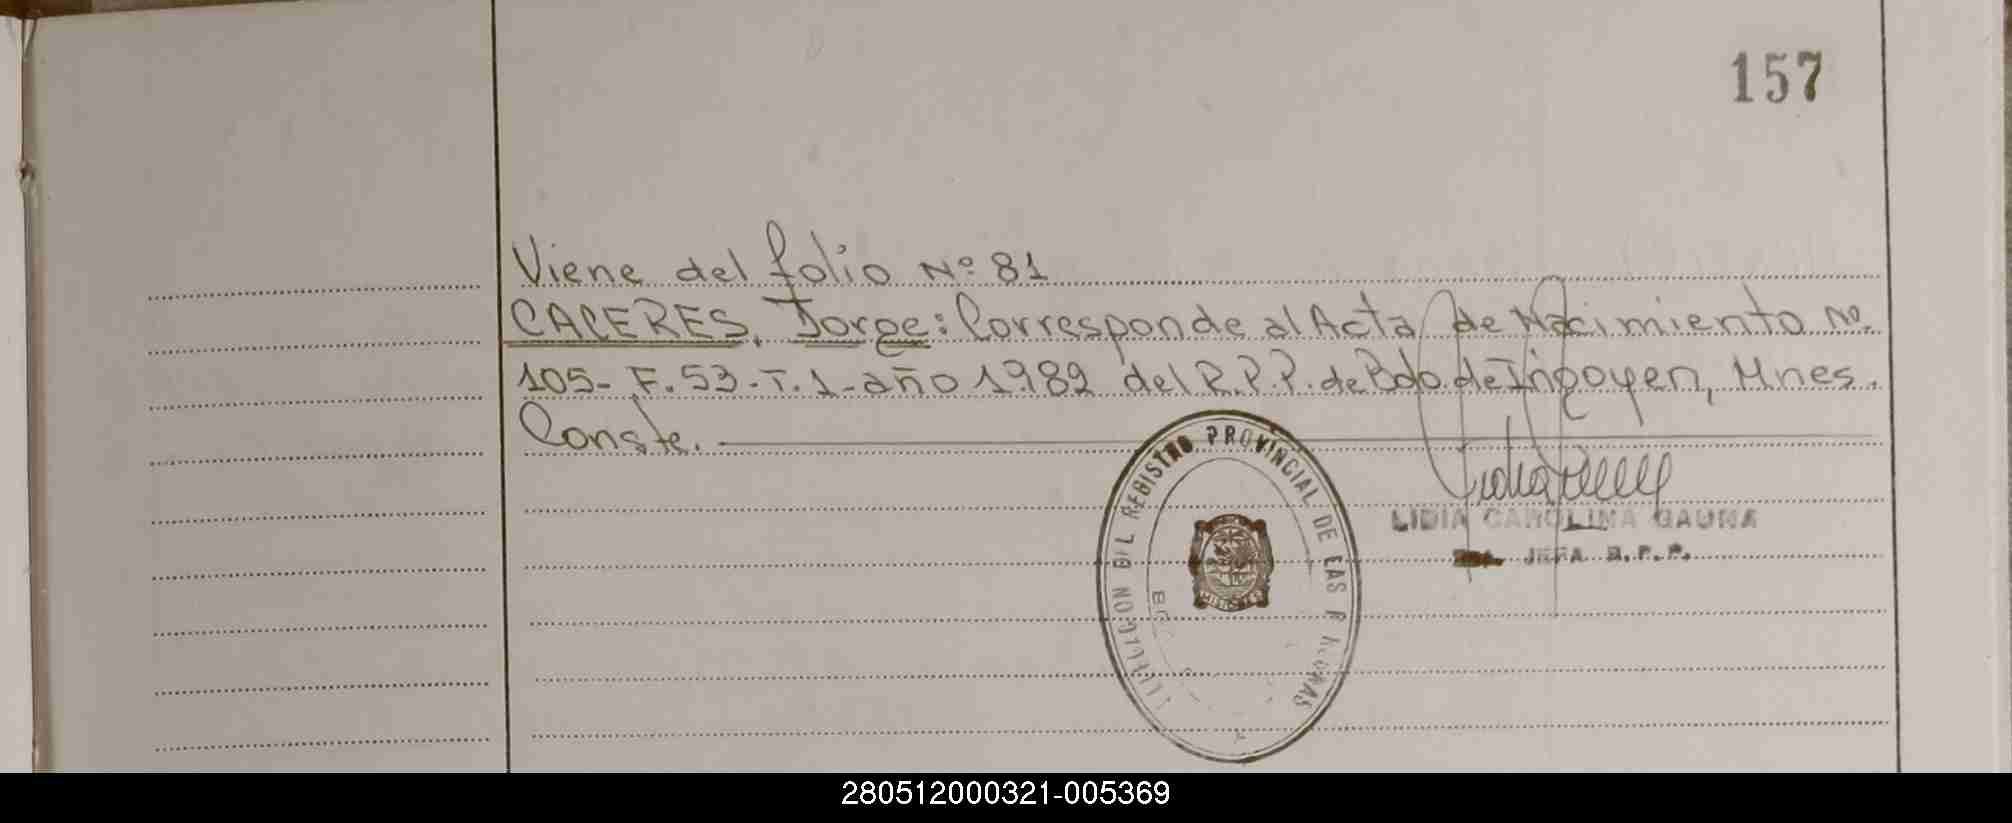 157
Viene del folio Nº 81
CACERES, Jorge: Corresponde al Acta de Nacimiento Nº
105- F. 53- T. 1- año 1982 del R.P.P. de Bdo. de Irigoyen, Mnes.
Conste.
DEL REGISTRO PROVINCIAL DE LAS
MISIONES
LIDIA CAROLINA GAUNA
JEFA R.P.P.
280512000321-005369